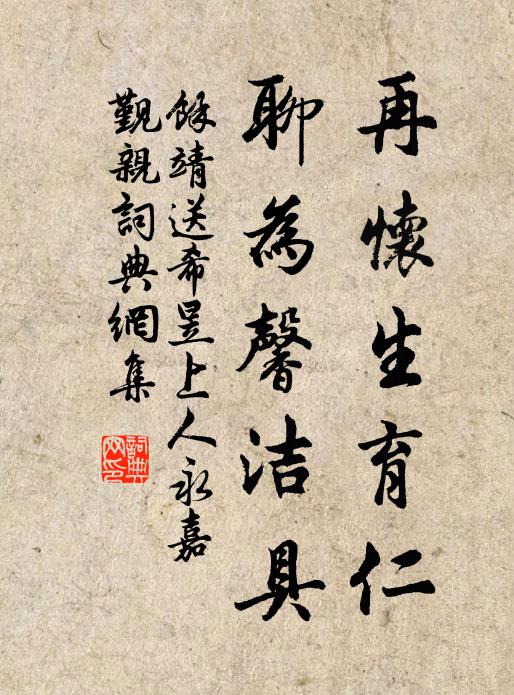 再懷生育仁
聊為馨洁具
餘靖送希昱上人永嘉
覲親詞典網集
詞典
网印